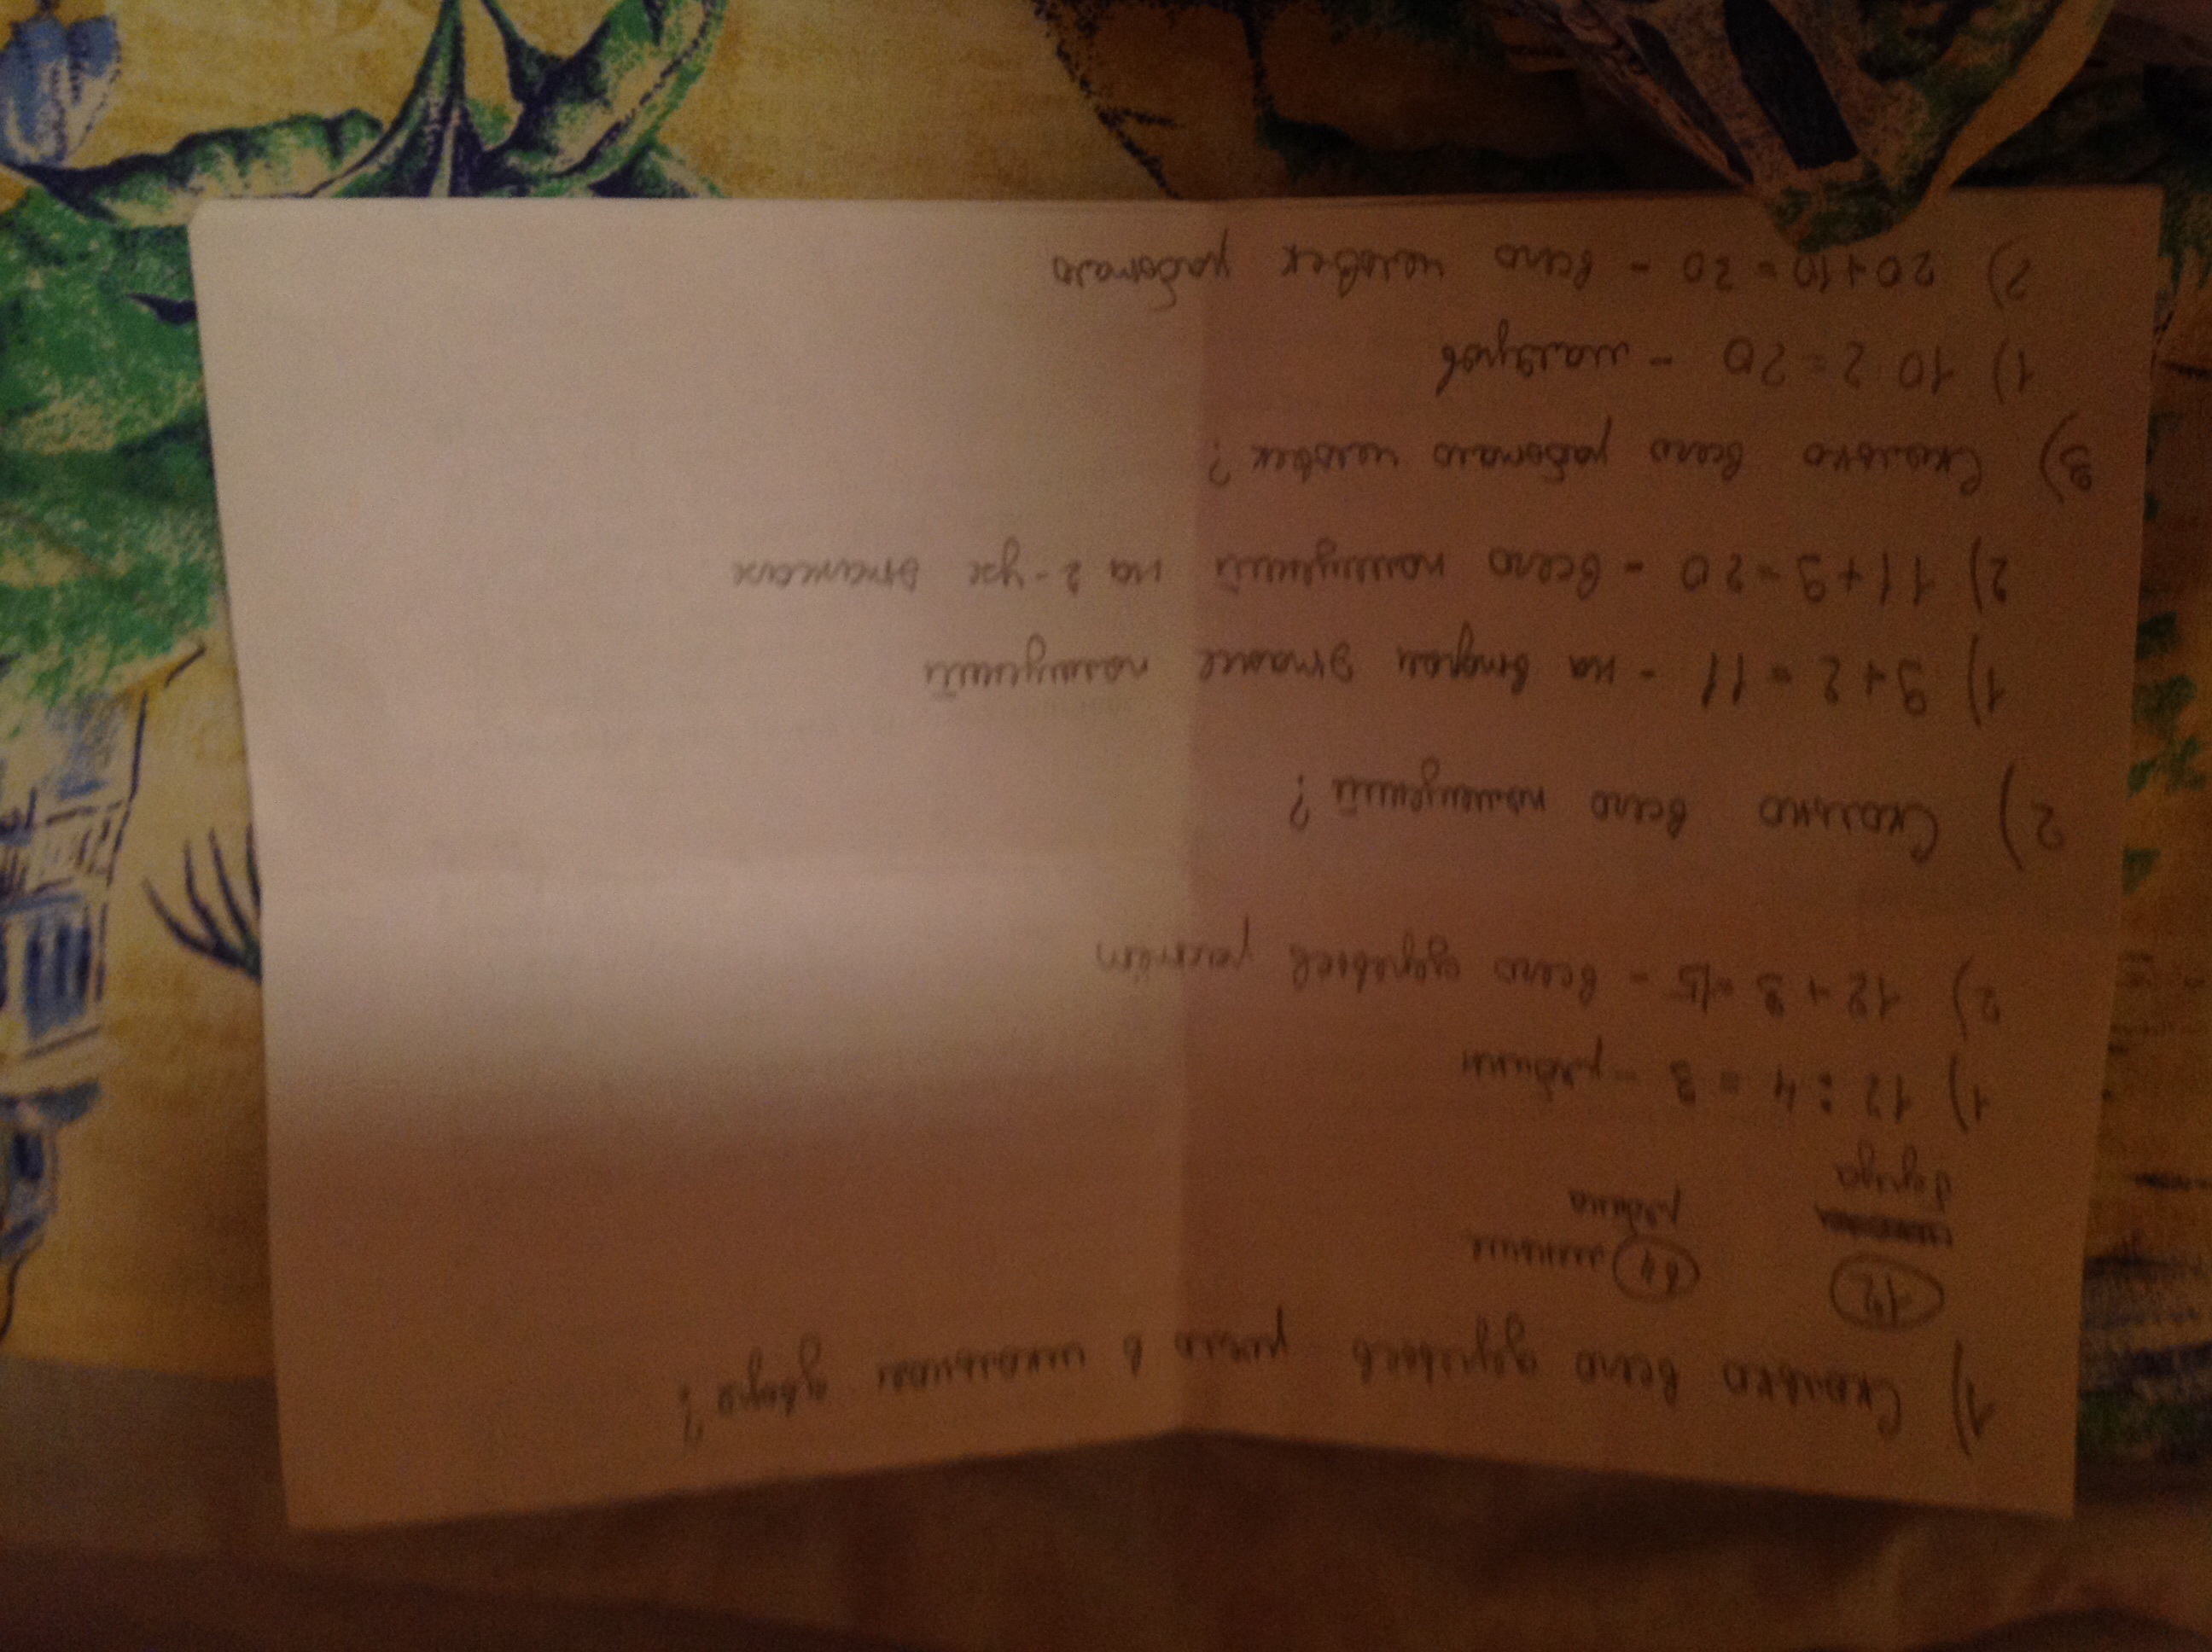 1) Сколько всего деревьев росло в школьном дворе?
12 в 4 меньше
берёза рябина
1) 12 : 4 = 3 - рябины
2) 12 + 3 = 15 - всего деревьев растёт
2) Сколько всего помещений?
1) 9 + 2 = 11 - на втором этаже помещений
2) 11 + 9 = 20 - всего помещений на 2-ух этажах
3) Сколько всего работало человек?
1) 10 · 2 = 20 - маляров
2) 20 + 10 = 30 - всего человек работало